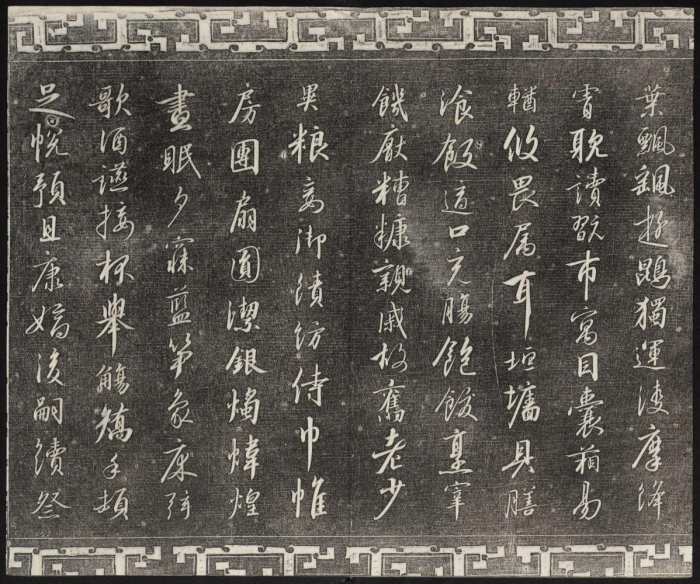 葉飄颻遊鵾獨運凌摩絳
霄耽讀翫市寓目囊箱易
輶攸畏属耳垣墻具膳
飡飯適口充腸飽飫烹宰
饑厭糟糠親戚故舊老少
異粮妾御績紡侍巾帷
房團扇圓潔銀燭煒煌
晝眠夕寐藍笋象床弦
歌酒讌接杯舉觴矯手頓
足悅豫且康嫡後嗣續祭